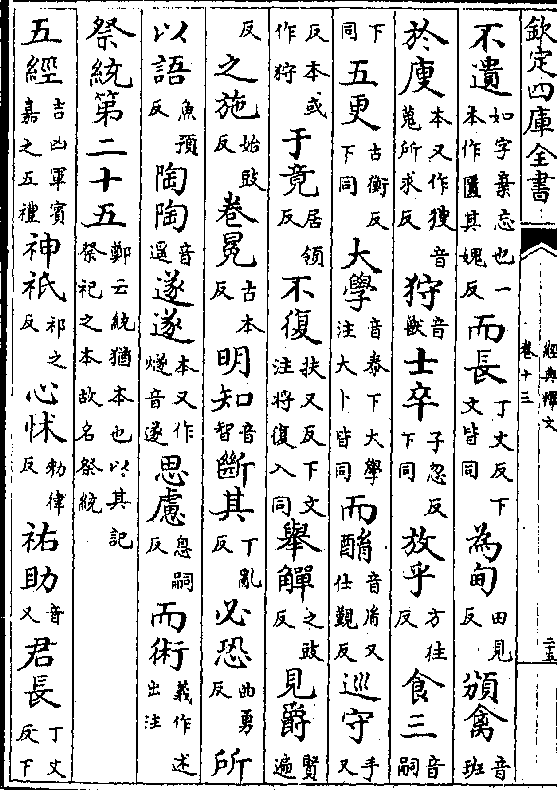 欽定四庫全書
經典釋文
卷十三
二五
不遺如字棄忘也一本作匱其媿反而長丁丈反下文皆同為甸田見反頒禽音班
於廋本又作獀音蒐所求反狩音獸士卒子忽反下同放乎方往反食三音嗣
下同五更古衡反下同大學音泰下大學注大卜皆同而酳音胤又仕覲反巡守手又
反本或作狩于竟居領反不復扶又反下文注將復入同舉觶之豉反見爵賢遍
反之施始豉反卷冕古本反明知音智斷其丁亂反必恐曲勇反所
以語魚預反陶陶音遥遂遂本又作燧音遂思慮息嗣反而術義作述出注
祭統第二十五鄭云統猶本也以其記祭祀之本故名祭統
五經吉凶軍賓嘉之五禮神祇祁之反心怵勑律反祐助音又君長丁丈反下